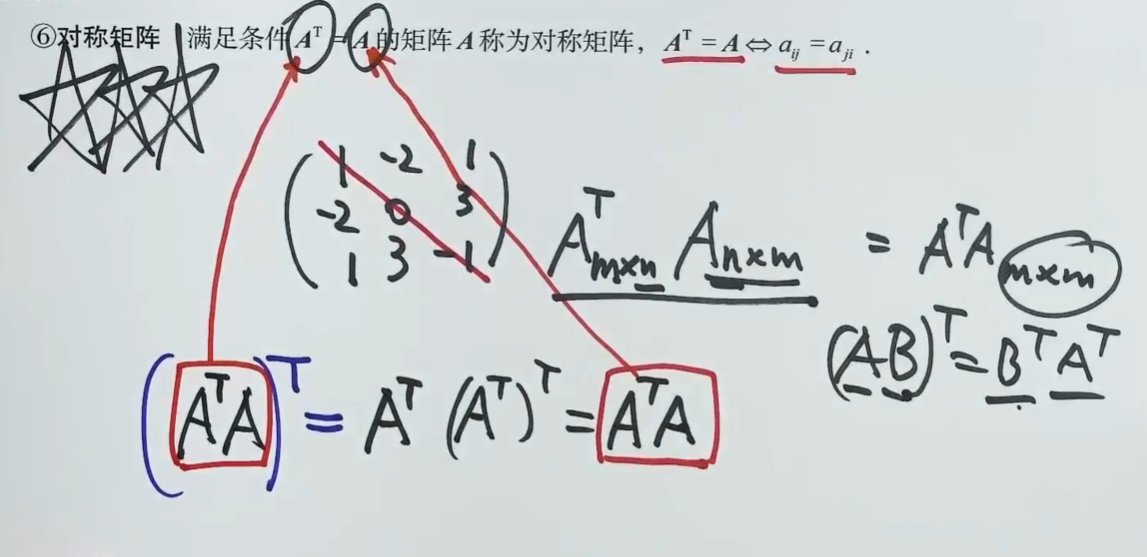 ⑥对称矩阵 满足条件 Aᵀ = A 的矩阵 A 称为对称矩阵， Aᵀ = A ⇔ aᵢⱼ = aⱼᵢ .
1 -2 1
-2 0 3
1 3 -1
Aᵀₘₓₙ Aₙₓₘ = AᵀA ₘₓₘ
(AB)ᵀ = BᵀAᵀ
(AᵀA)ᵀ = Aᵀ(Aᵀ)ᵀ = AᵀA